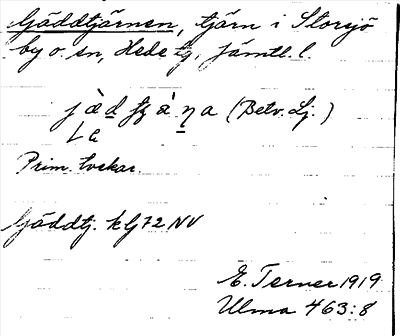 Gäddtjärnen, tjärn i Storsjö
by o. sn, Hede tg, Jämtl. l.
(Betv. Lj.)
Prim. tvekar.
Gäddtj. kbl 72 NV
E. Terner 1919
Ulma 463:8